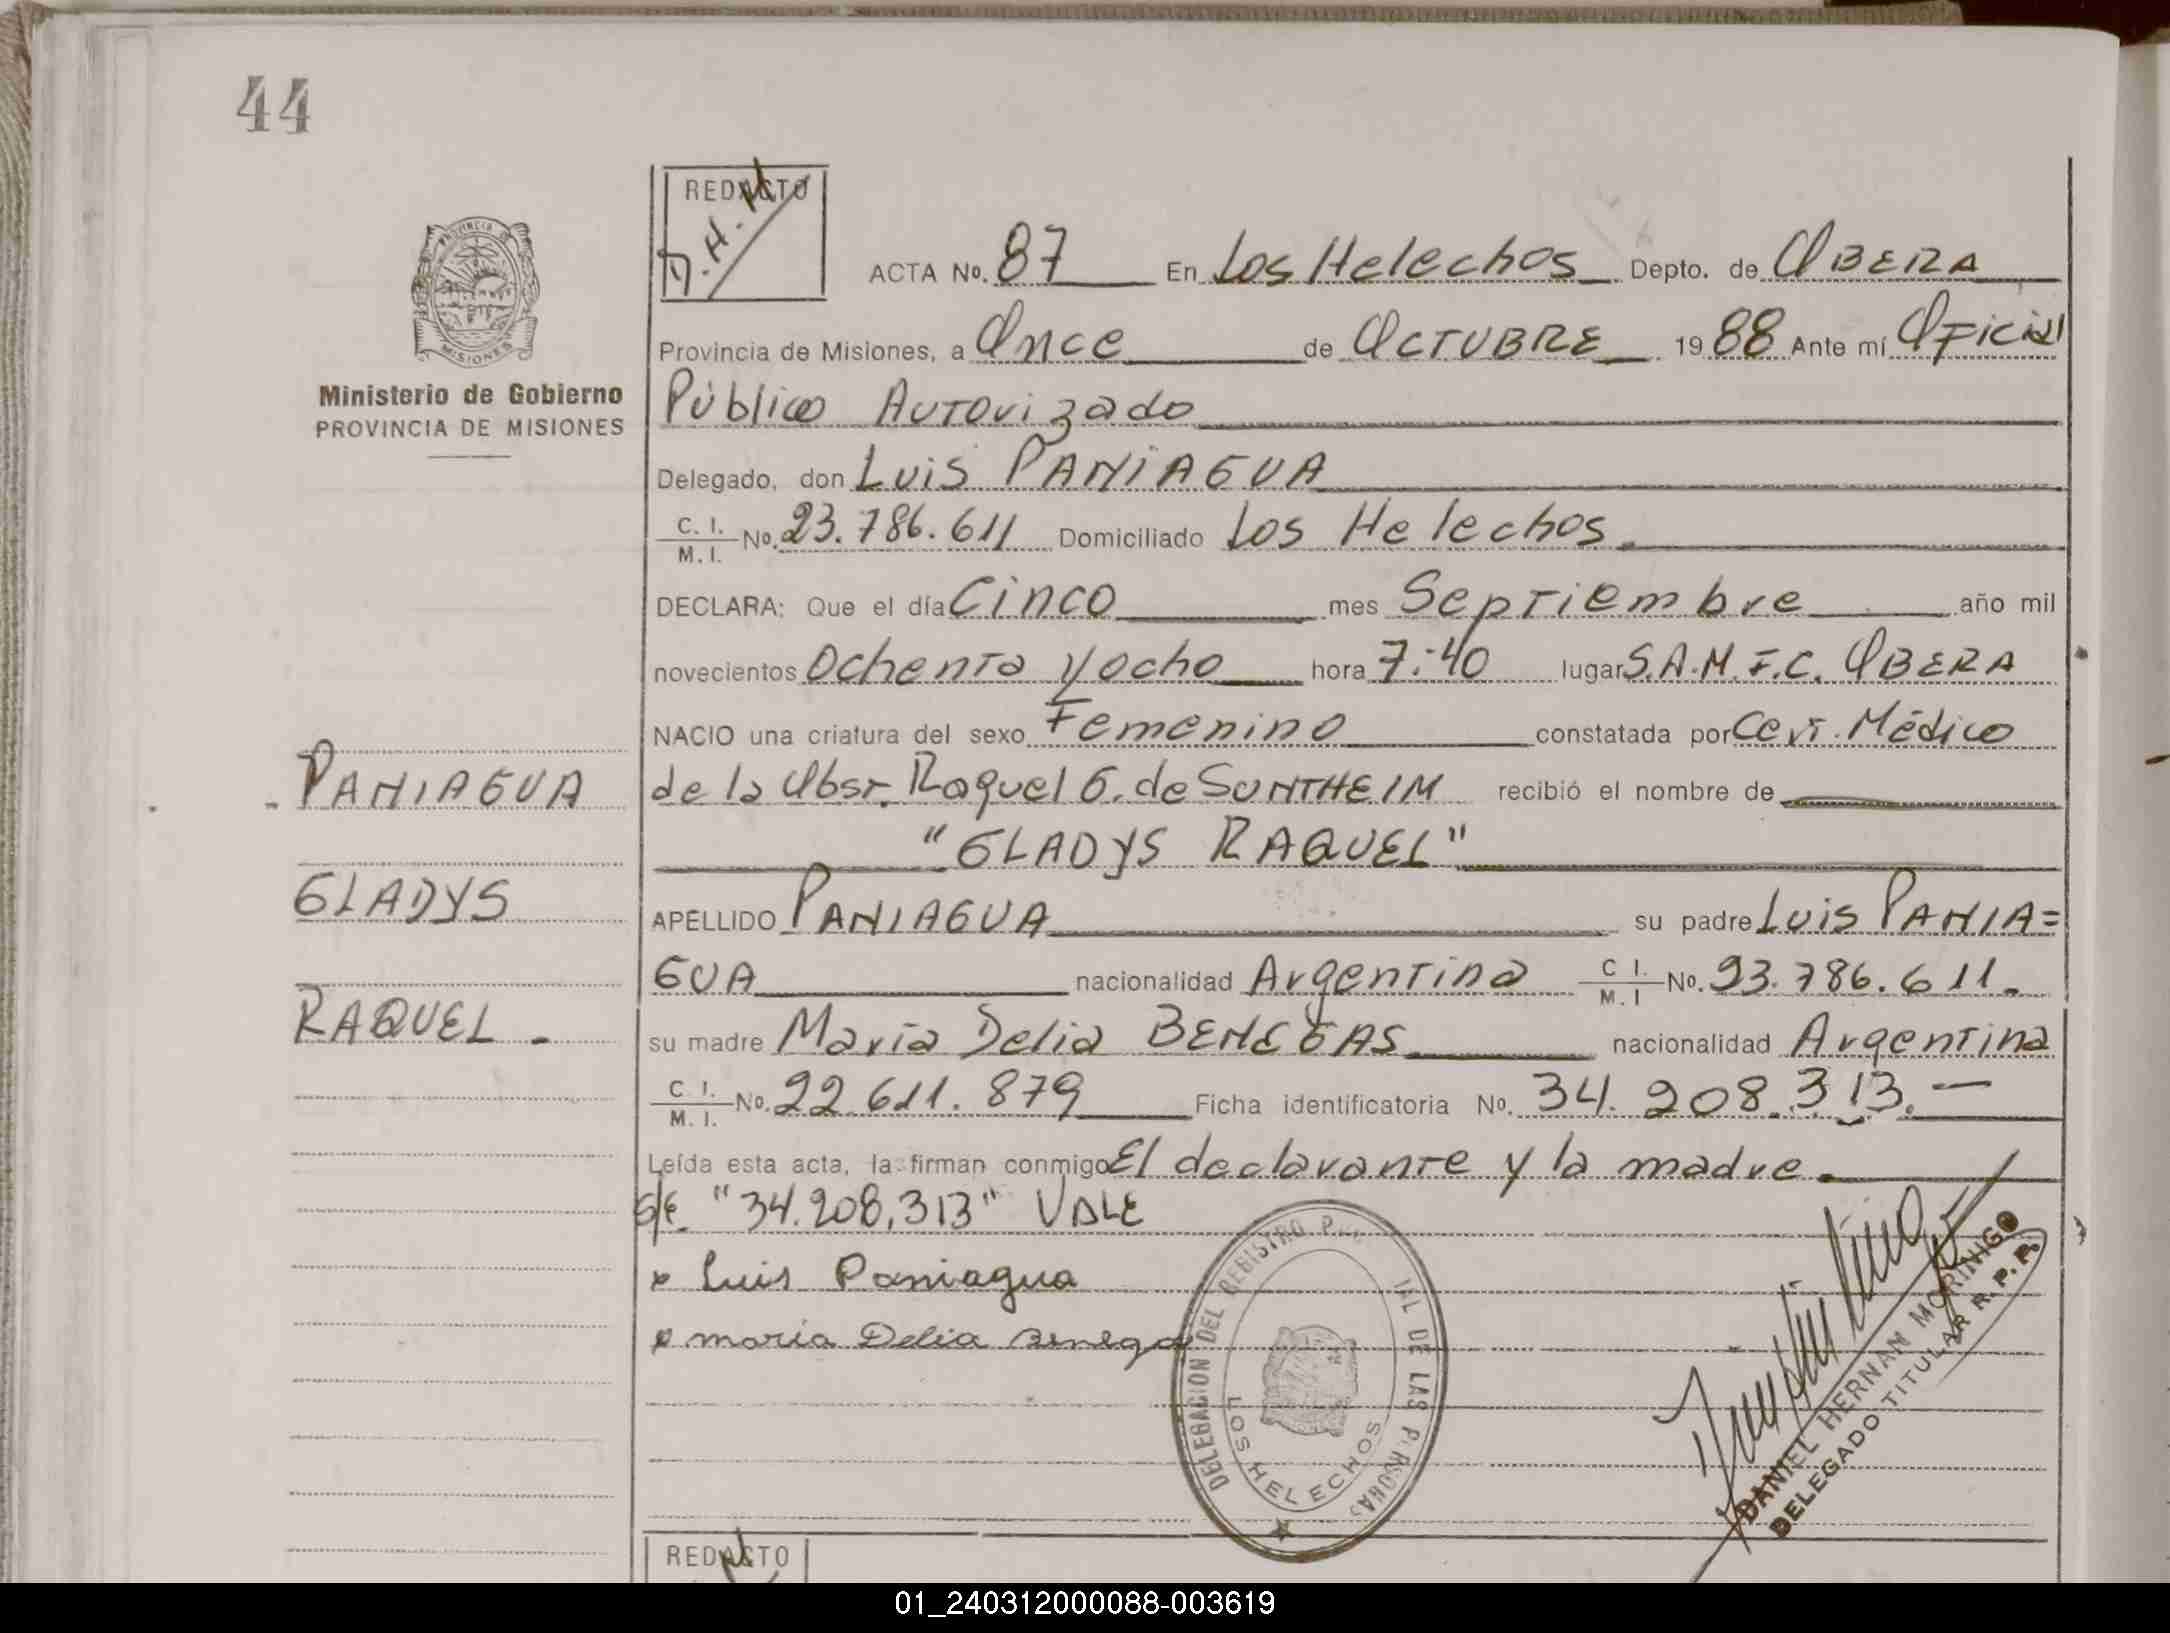 44
REDACTO
D.H.M
ACTA No. 87 En Los Helechos Depto. de OBERA
Provincia de Misiones, a Once de OCTUBRE 1988 Ante mí Oficial
Público Autorizado
Ministerio de Gobierno
PROVINCIA DE MISIONES
Delegado, don Luis PANIAGUA
C. I. / M. I. No. 23.786.611 Domiciliado Los Helechos.
DECLARA: Que el día Cinco mes Septiembre año mil
novecientos Ochenta y ocho hora 7:40 lugar S.A.M.F.C. OBERA
NACIO una criatura del sexo Femenino constatada por Cert. Médico
de la Obst. Raquel G. de SONTHEIM recibió el nombre de
"GLADYS RAQUEL"
APELLIDO PANIAGUA su padre Luis PANIA=
GUA nacionalidad Argentina C I. / M. I No. 23.786.611.
su madre María Delia BENEGAS nacionalidad Argentina
C. I. / M. I. No. 22.611.879 Ficha identificatoria No. 34.208.313.-
Leída esta acta, la firman conmigo El declarante y la madre.
S/E "34.208.313" VALE
Luis Paniagua
maria Delia Benega
PANIAGUA
GLADYS
RAQUEL.
DELEGACION DEL REGISTRO DE LAS PERSONAS
LOS HELECHOS
DANIEL HERNAN MORINIGO
DELEGADO TITULAR R. P. P.
REDACTO
01_240312000088-003619